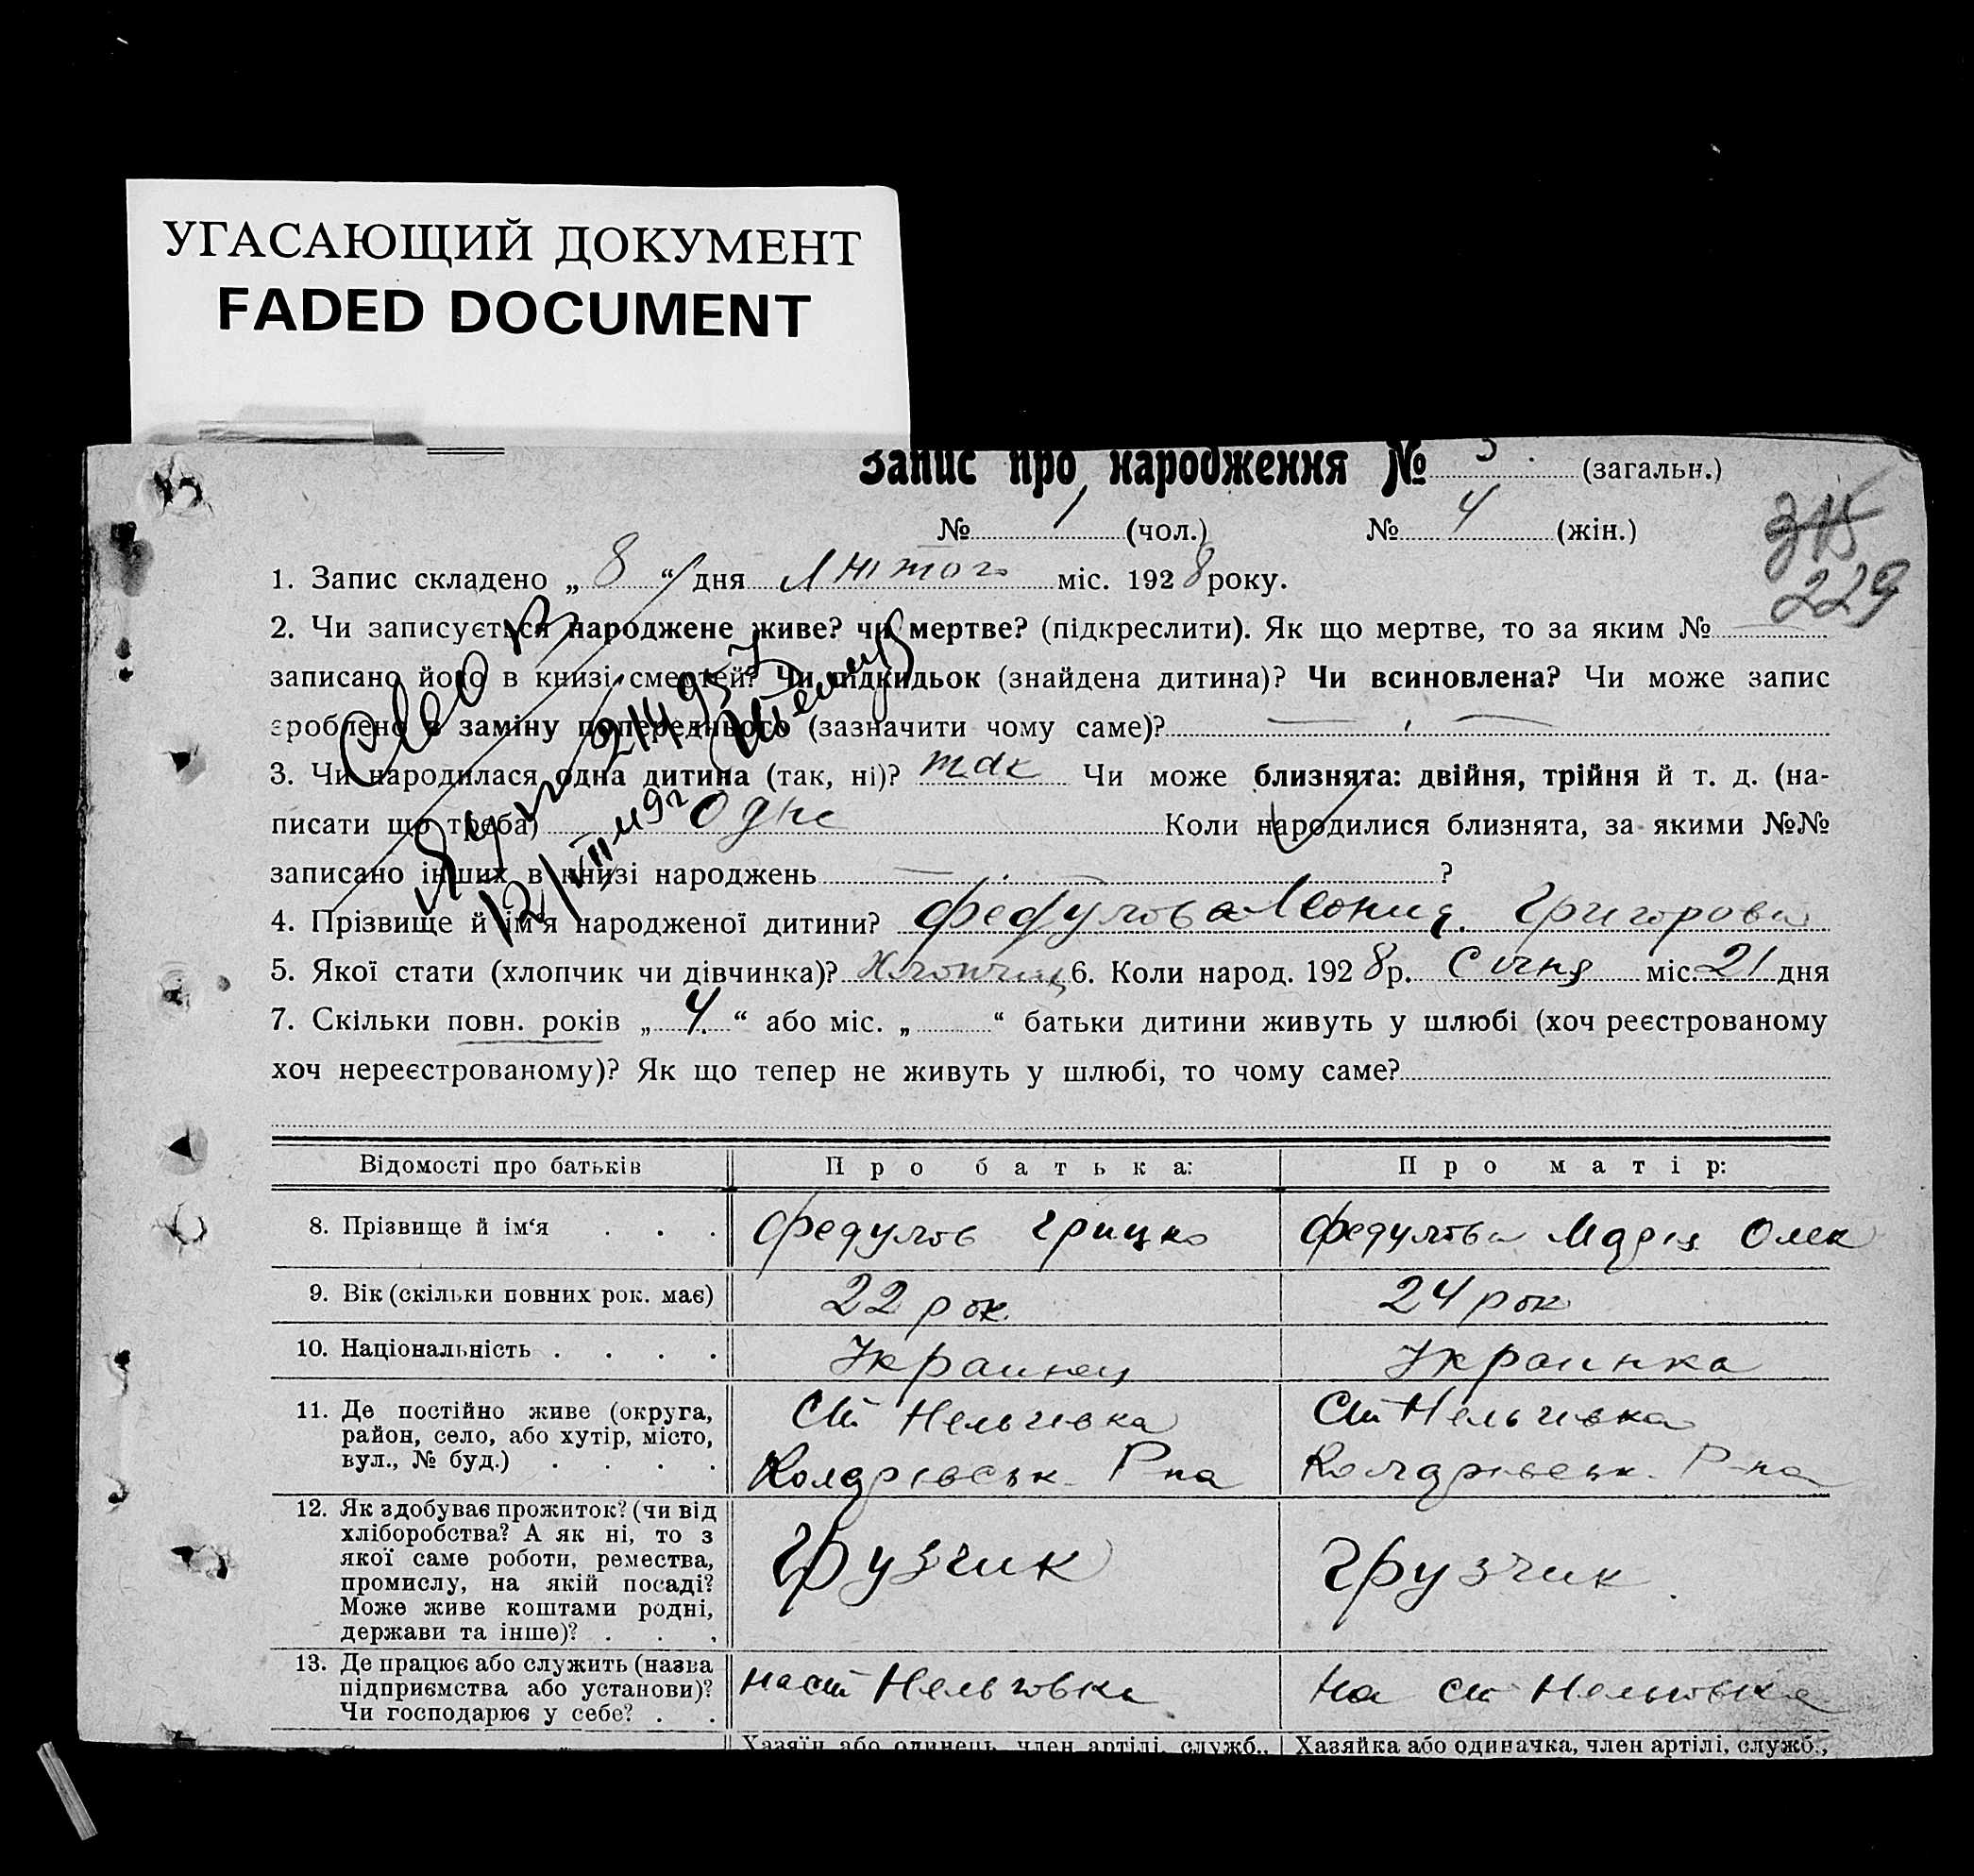 УГАСАЮЩИЙ ДОКУМЕНТ
FADED DOCUMENT
Запис про народження № 5. (загальн.)
№ 1 (чол.) № 4 (жін.)
315
229
1. Запис складено „ 8 “ дня Лютого міс. 1928 року.
2. Чи записується народжене живе? чи мертве? (підкреслити). Як що мертве, то за яким №
записано його в книзі смертей? Чи підкидьок (знайдена дитина)? Чи всиновлена? Чи може запис
зроблено в заміну попереднього (зазначити чому саме)?
3. Чи народилася одна дитина (так, ні)? так Чи може близнята: двійня, трійня й т. д. (на-
писати що треба) одне Коли народилися близнята, за якими №№
записано інших в книзі народжень ?
4. Прізвище й ім'я народженої дитини? Федулов Леонид Григорови
5. Якої стати (хлопчик чи дівчинка)? Хлопчик 6. Коли народ. 1928 р. Січня міс. 21 дня
7. Скільки повн. років „ 4. “ або міс. „ “ батьки дитини живуть у шлюбі (хоч реєстрованому
хоч нереєстрованому)? Як що тепер не живуть у шлюбі, то чому саме?
Відомості про батьків Про батька: Про матір:
8. Прізвище й ім‘я . . . Федулов Грицко Федулова Марія Олек
9. Вік (скільки повних рок. має) 22 рок. 24 рок
10. Національність . . . . Украинец Украинка
11. Де постійно живе (округа,
район, село, або хутір, місто,
вул., № буд.) . . . .
Ст Нельгівка
Колдрівськ. Р-на
Ст Нельгівка
Колдрівськ. Р-на
12. Як здобуває прожиток? (чи від
хліборобства? А як ні, то з
якої саме роботи, ремества,
промислу, на якій посаді?
Може живе коштами родні,
держави та інше)? . . .
Грузчик
Грузчик
13. Де працює або служить (назва
підприємства або установи)?
Чи господарює у себе? . .
на ст Нельговка
На ст Нельговка
Хазяїн або одинець, член артілі, служб., Хазяйка або одиначка, член артілі, служб.,